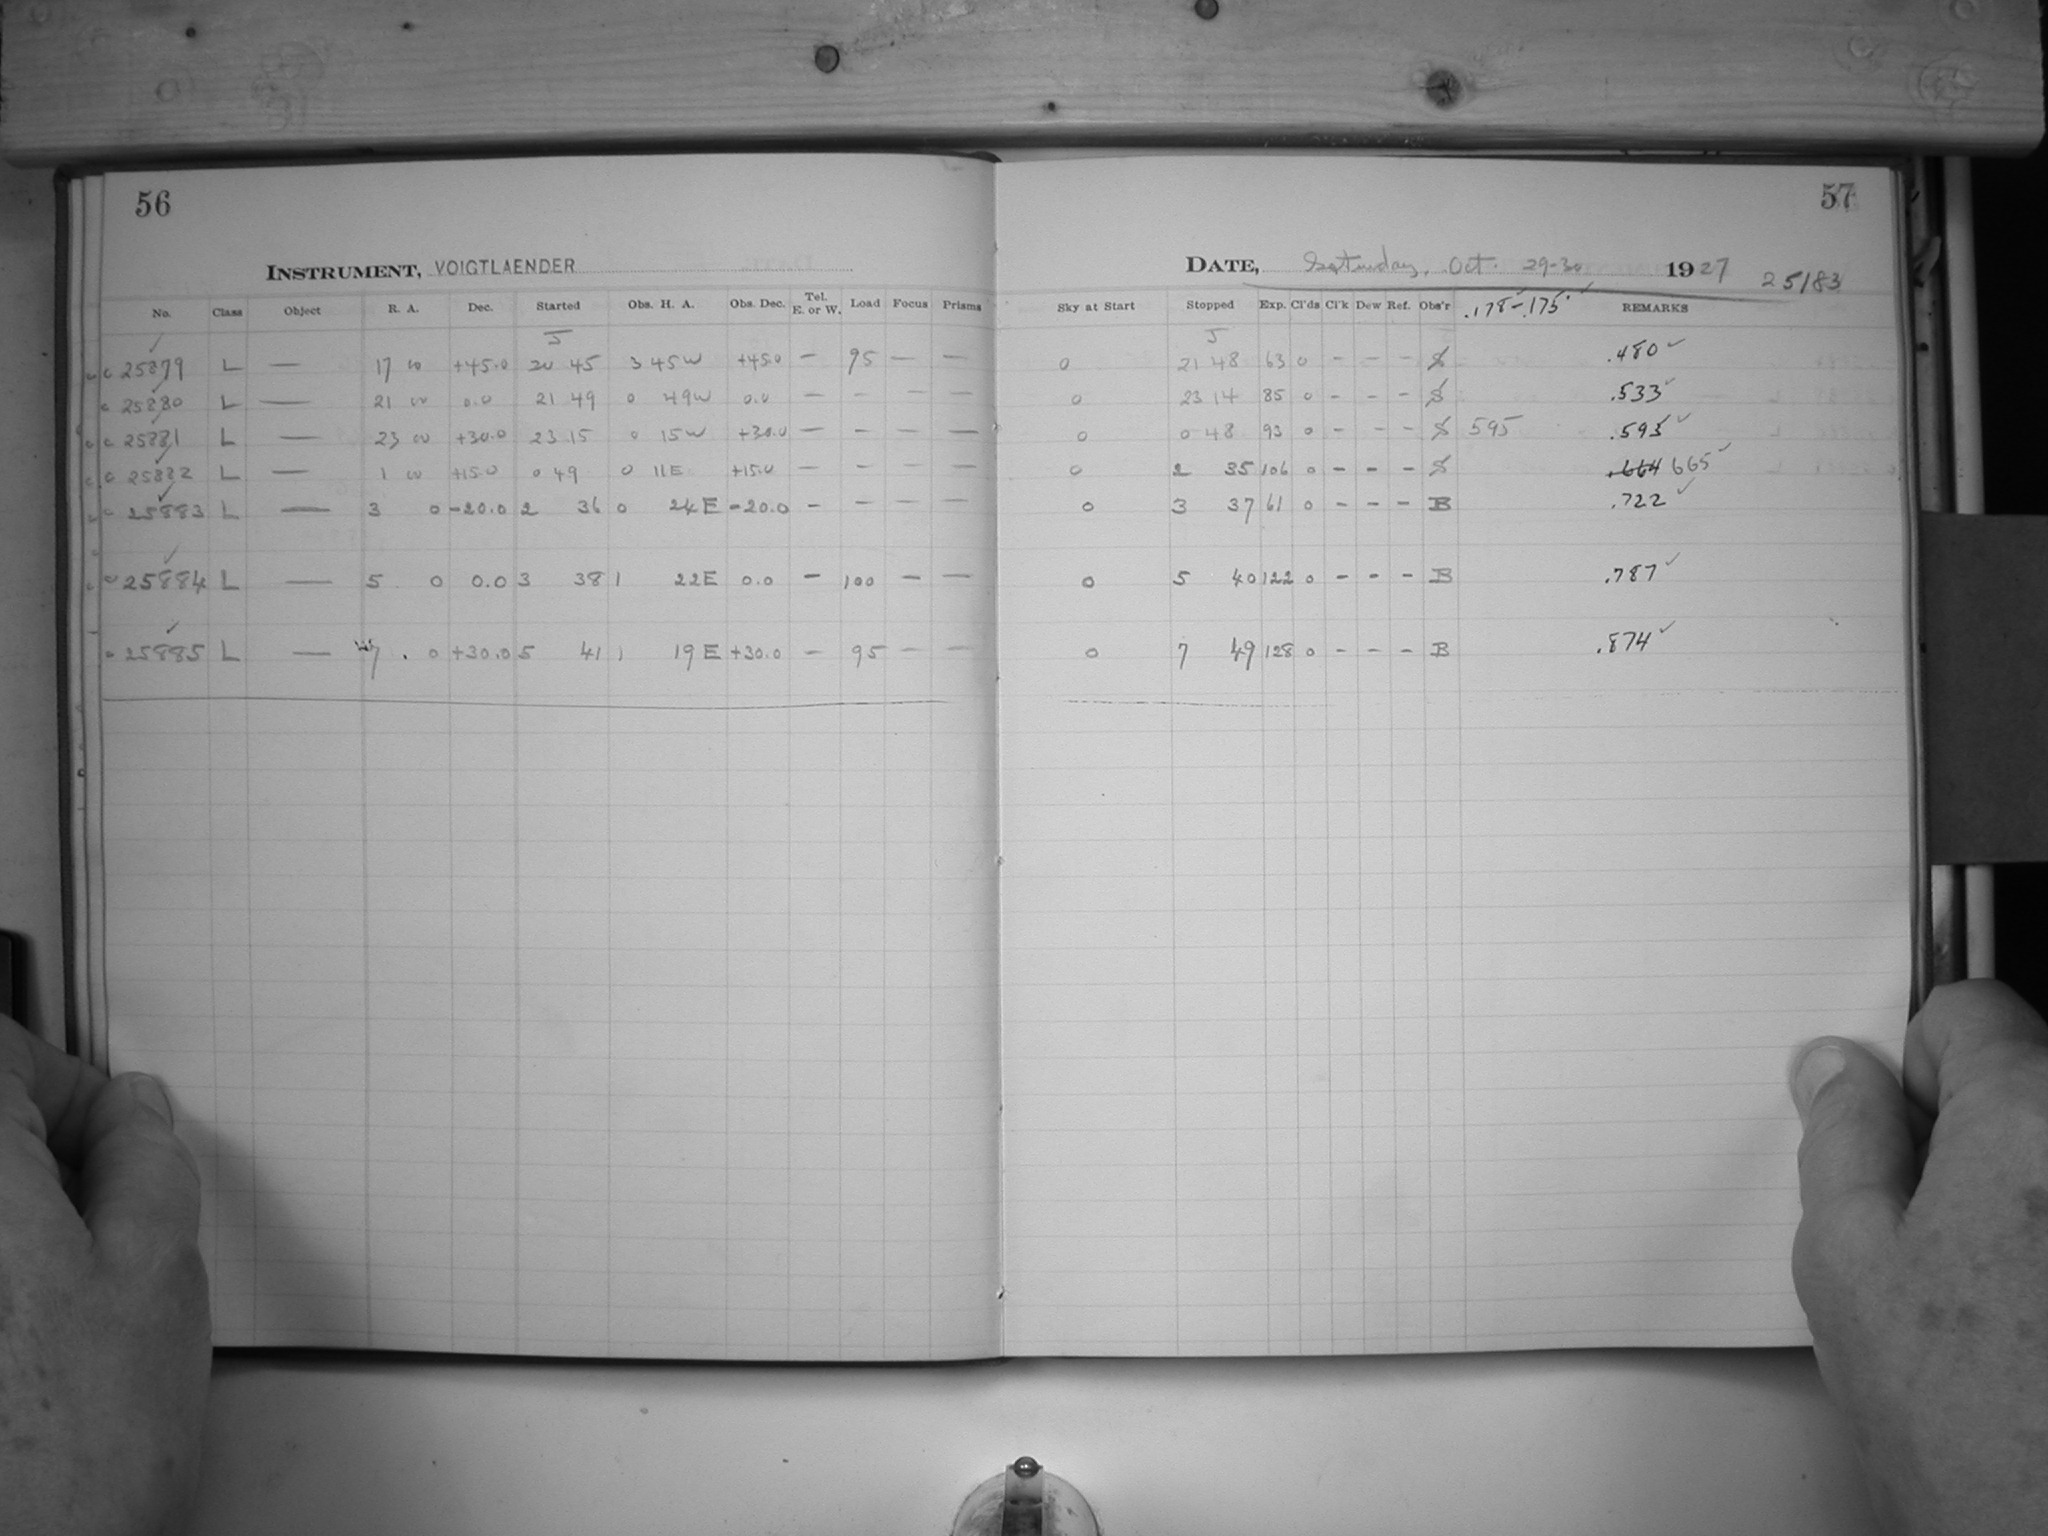 56
57
INSTRUMENT, VOIGTLAENDER
DATE, Saturday, Oct. 29-30 1927 25183
No. Class Object R. A. Dec. Started Obs. H. A. Obs. Dec. Tel. E. or W. Load Focus Prisms Sky at Start Stopped Exp. Cl'ds Cl'k Dew Ref. Obs'r .178-.175 REMARKS
J J
25879 L — 17 00 +45.0 20 45 3 45W +45.0 — 95 — — 0 21 48 63 0 - - - S .480 ✓
25880 L — 21 00 0.0 21 49 0 49W 0.0 — — — — 0 23 14 85 0 - - - S .533 ✓
25881 L — 23 00 +30.0 23 15 0 15W +30.0 — — — — 0 0 48 93 0 - - - S 595 .595 ✓
25882 L — 1 00 +15.0 0 49 0 11E +15.0 — — — — 0 2 35 106 0 - - - S .664 665 ✓
25883 L — 3 0 -20.0 2 36 0 24E -20.0 — — — — 0 3 37 61 0 - - - B .722 ✓
25884 L — 5 0 0.0 3 38 1 22E 0.0 — 100 — — 0 5 40 122 0 - - - B .787 ✓
25885 L — 7 0 +30.0 5 41 1 19E +30.0 — 95 — — 0 7 49 128 0 - - - B .874 ✓